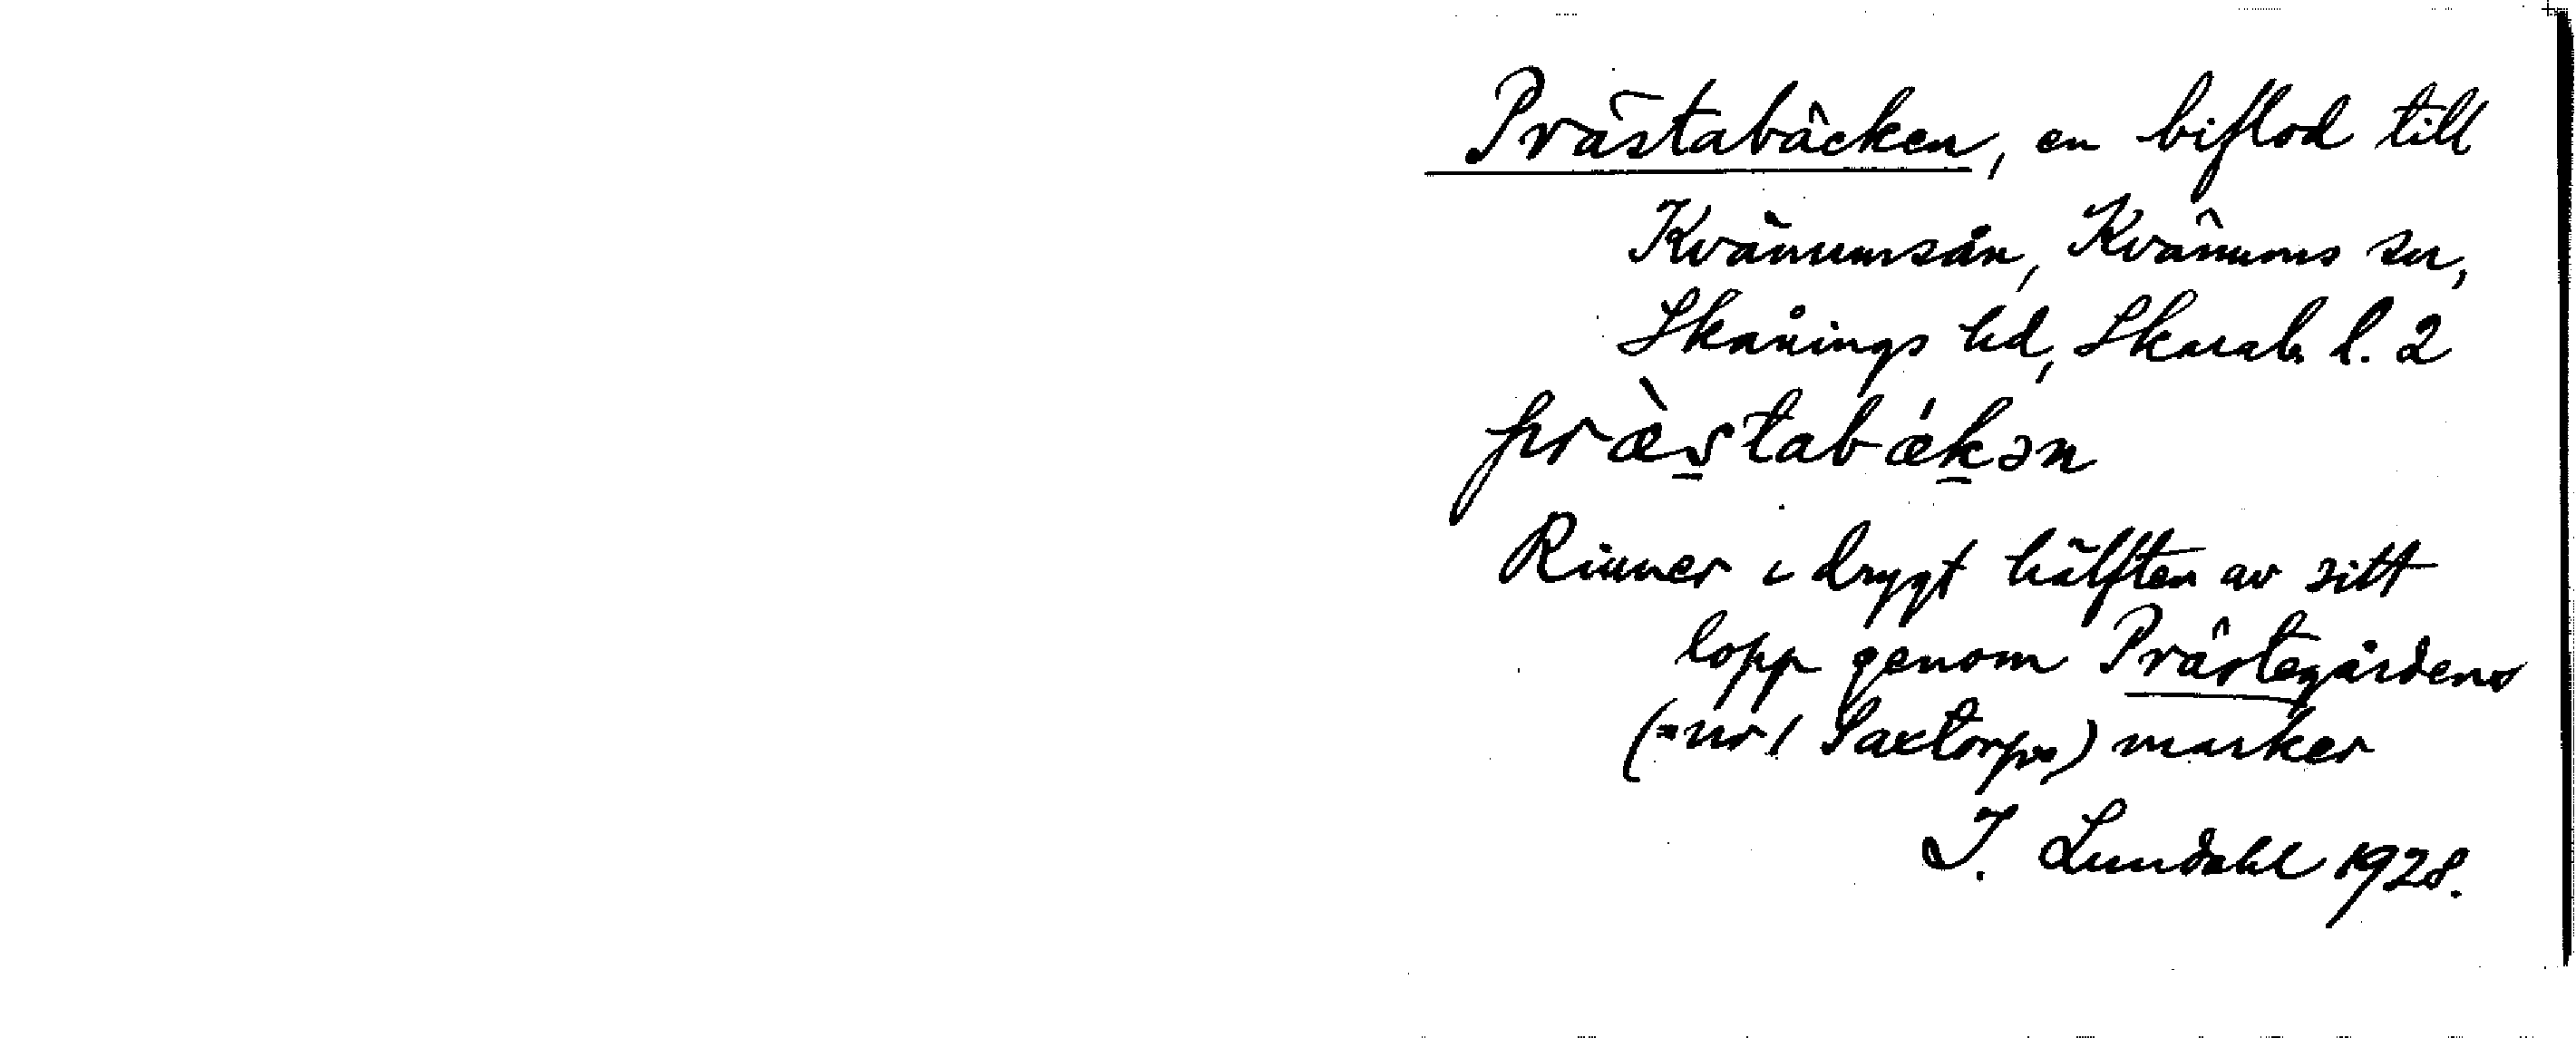 Prästabäcken, en biflod till
Kvänumsån, Kvänums sn,
Skånings hd, Skarab. l. 2
præ̀stabǽkən
Rinner i drygt hälften av sitt
lopp genom Prästegårdens
(= nr 1 Saxtorps) marker
I. Lundahl 1928.